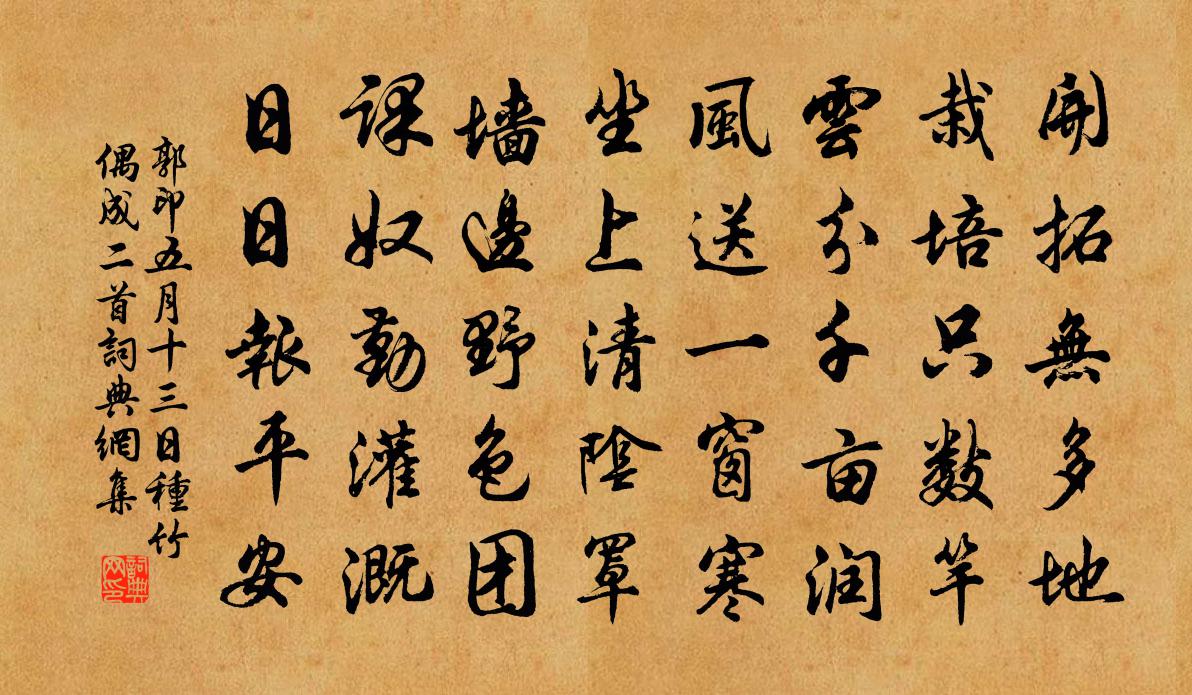 開拓無多地
栽培只数竿
雲分千亩润
風送一窗寒
坐上清陰罩
墙邊野色团
課奴勤灌溉
日日報平安
郭印五月十三日種竹
偶成二首詞典網集
詞典
网印